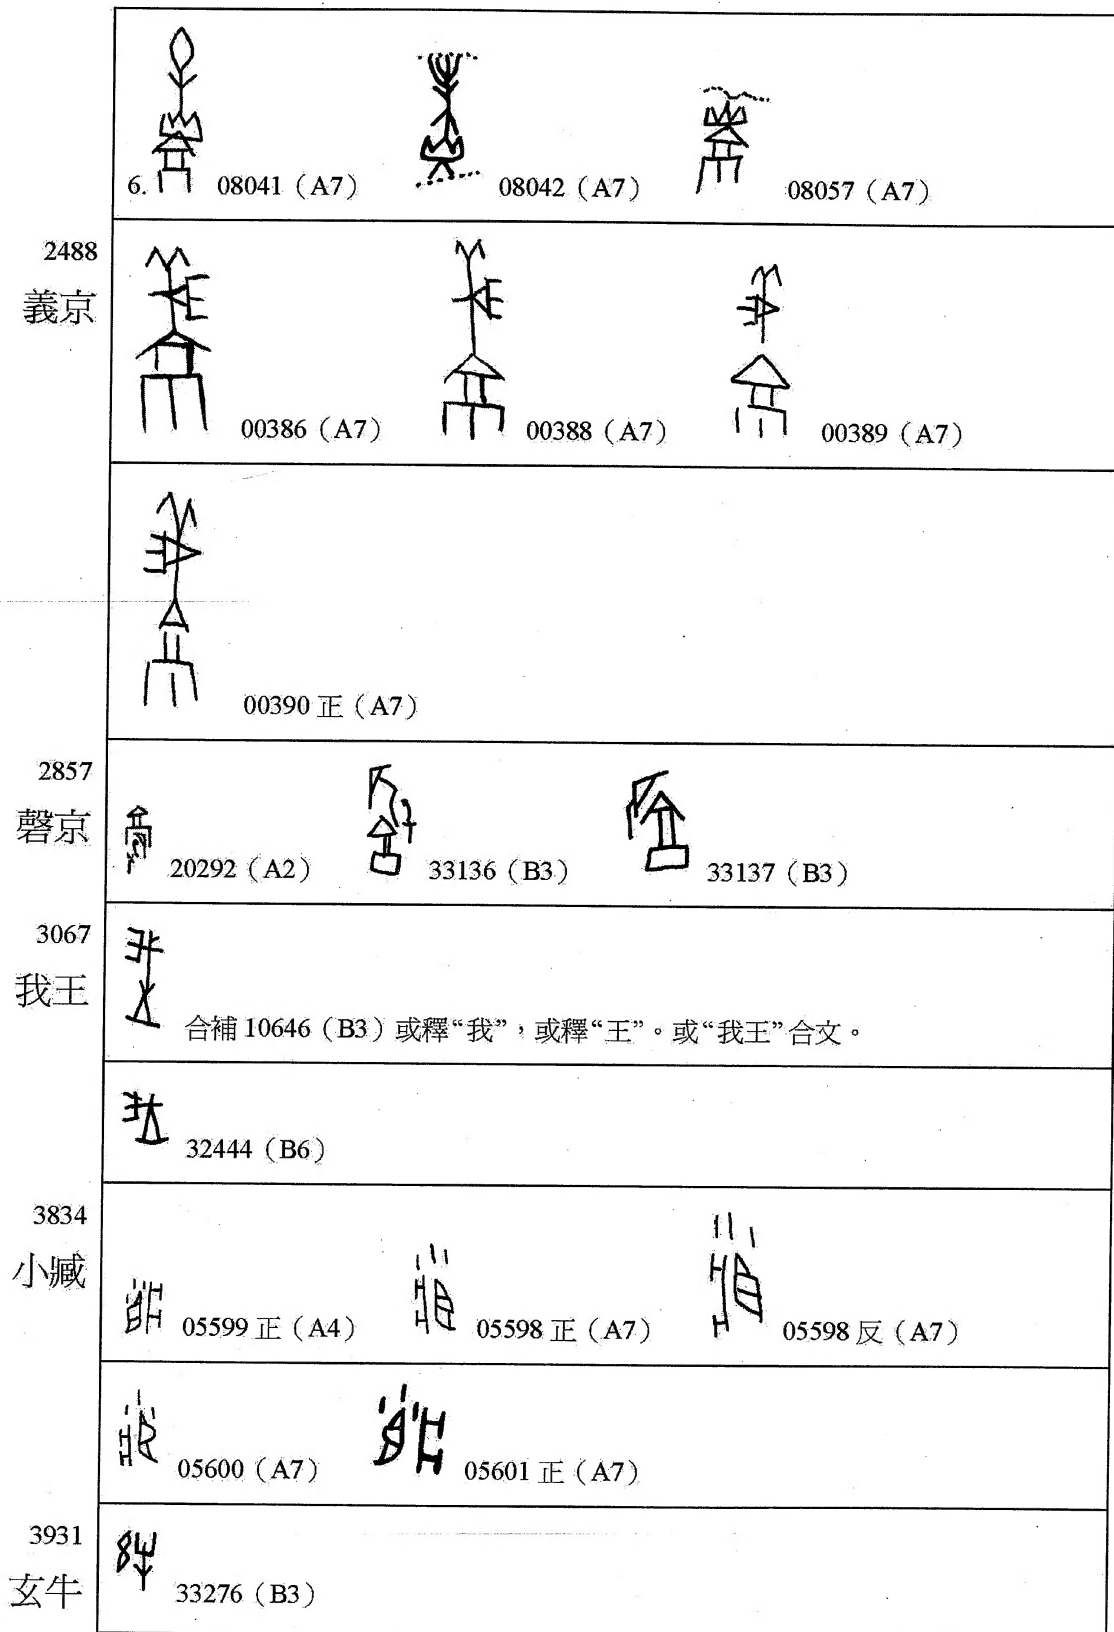 6. 08041（A7） 08042（A7） 08057（A7）
2488
義京
00386（A7） 00388（A7） 00389（A7）
00390 正（A7）
2857
磬京
20292（A2） 33136（B3） 33137（B3）
3067
我王
合補 10646（B3）或釋“我”，或釋“王”。或“我王”合文。
32444（B6）
3834
小臧
05599 正（A4） 05598 正（A7） 05598 反（A7）
05600（A7） 05601 正（A7）
3931
玄牛
33276（B3）